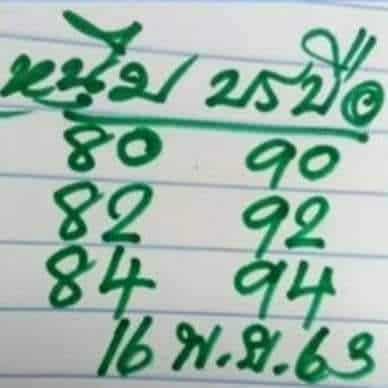 หนุ่ม บรบือ
80 90
82 92
84 94
16 พ.ย.63